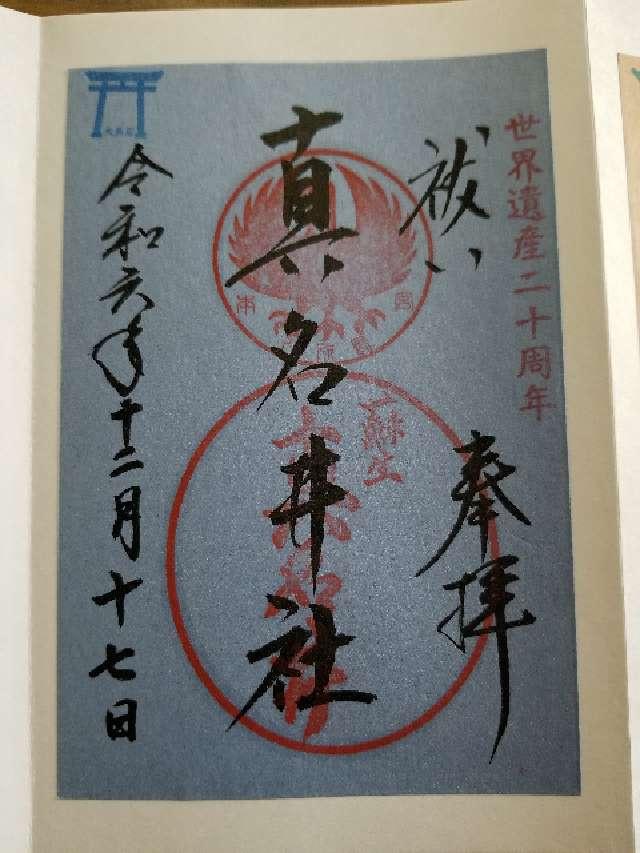 世界遺産二十周年
祓い
奉拝
真名井社
蘇生
令和六年十二月十七日